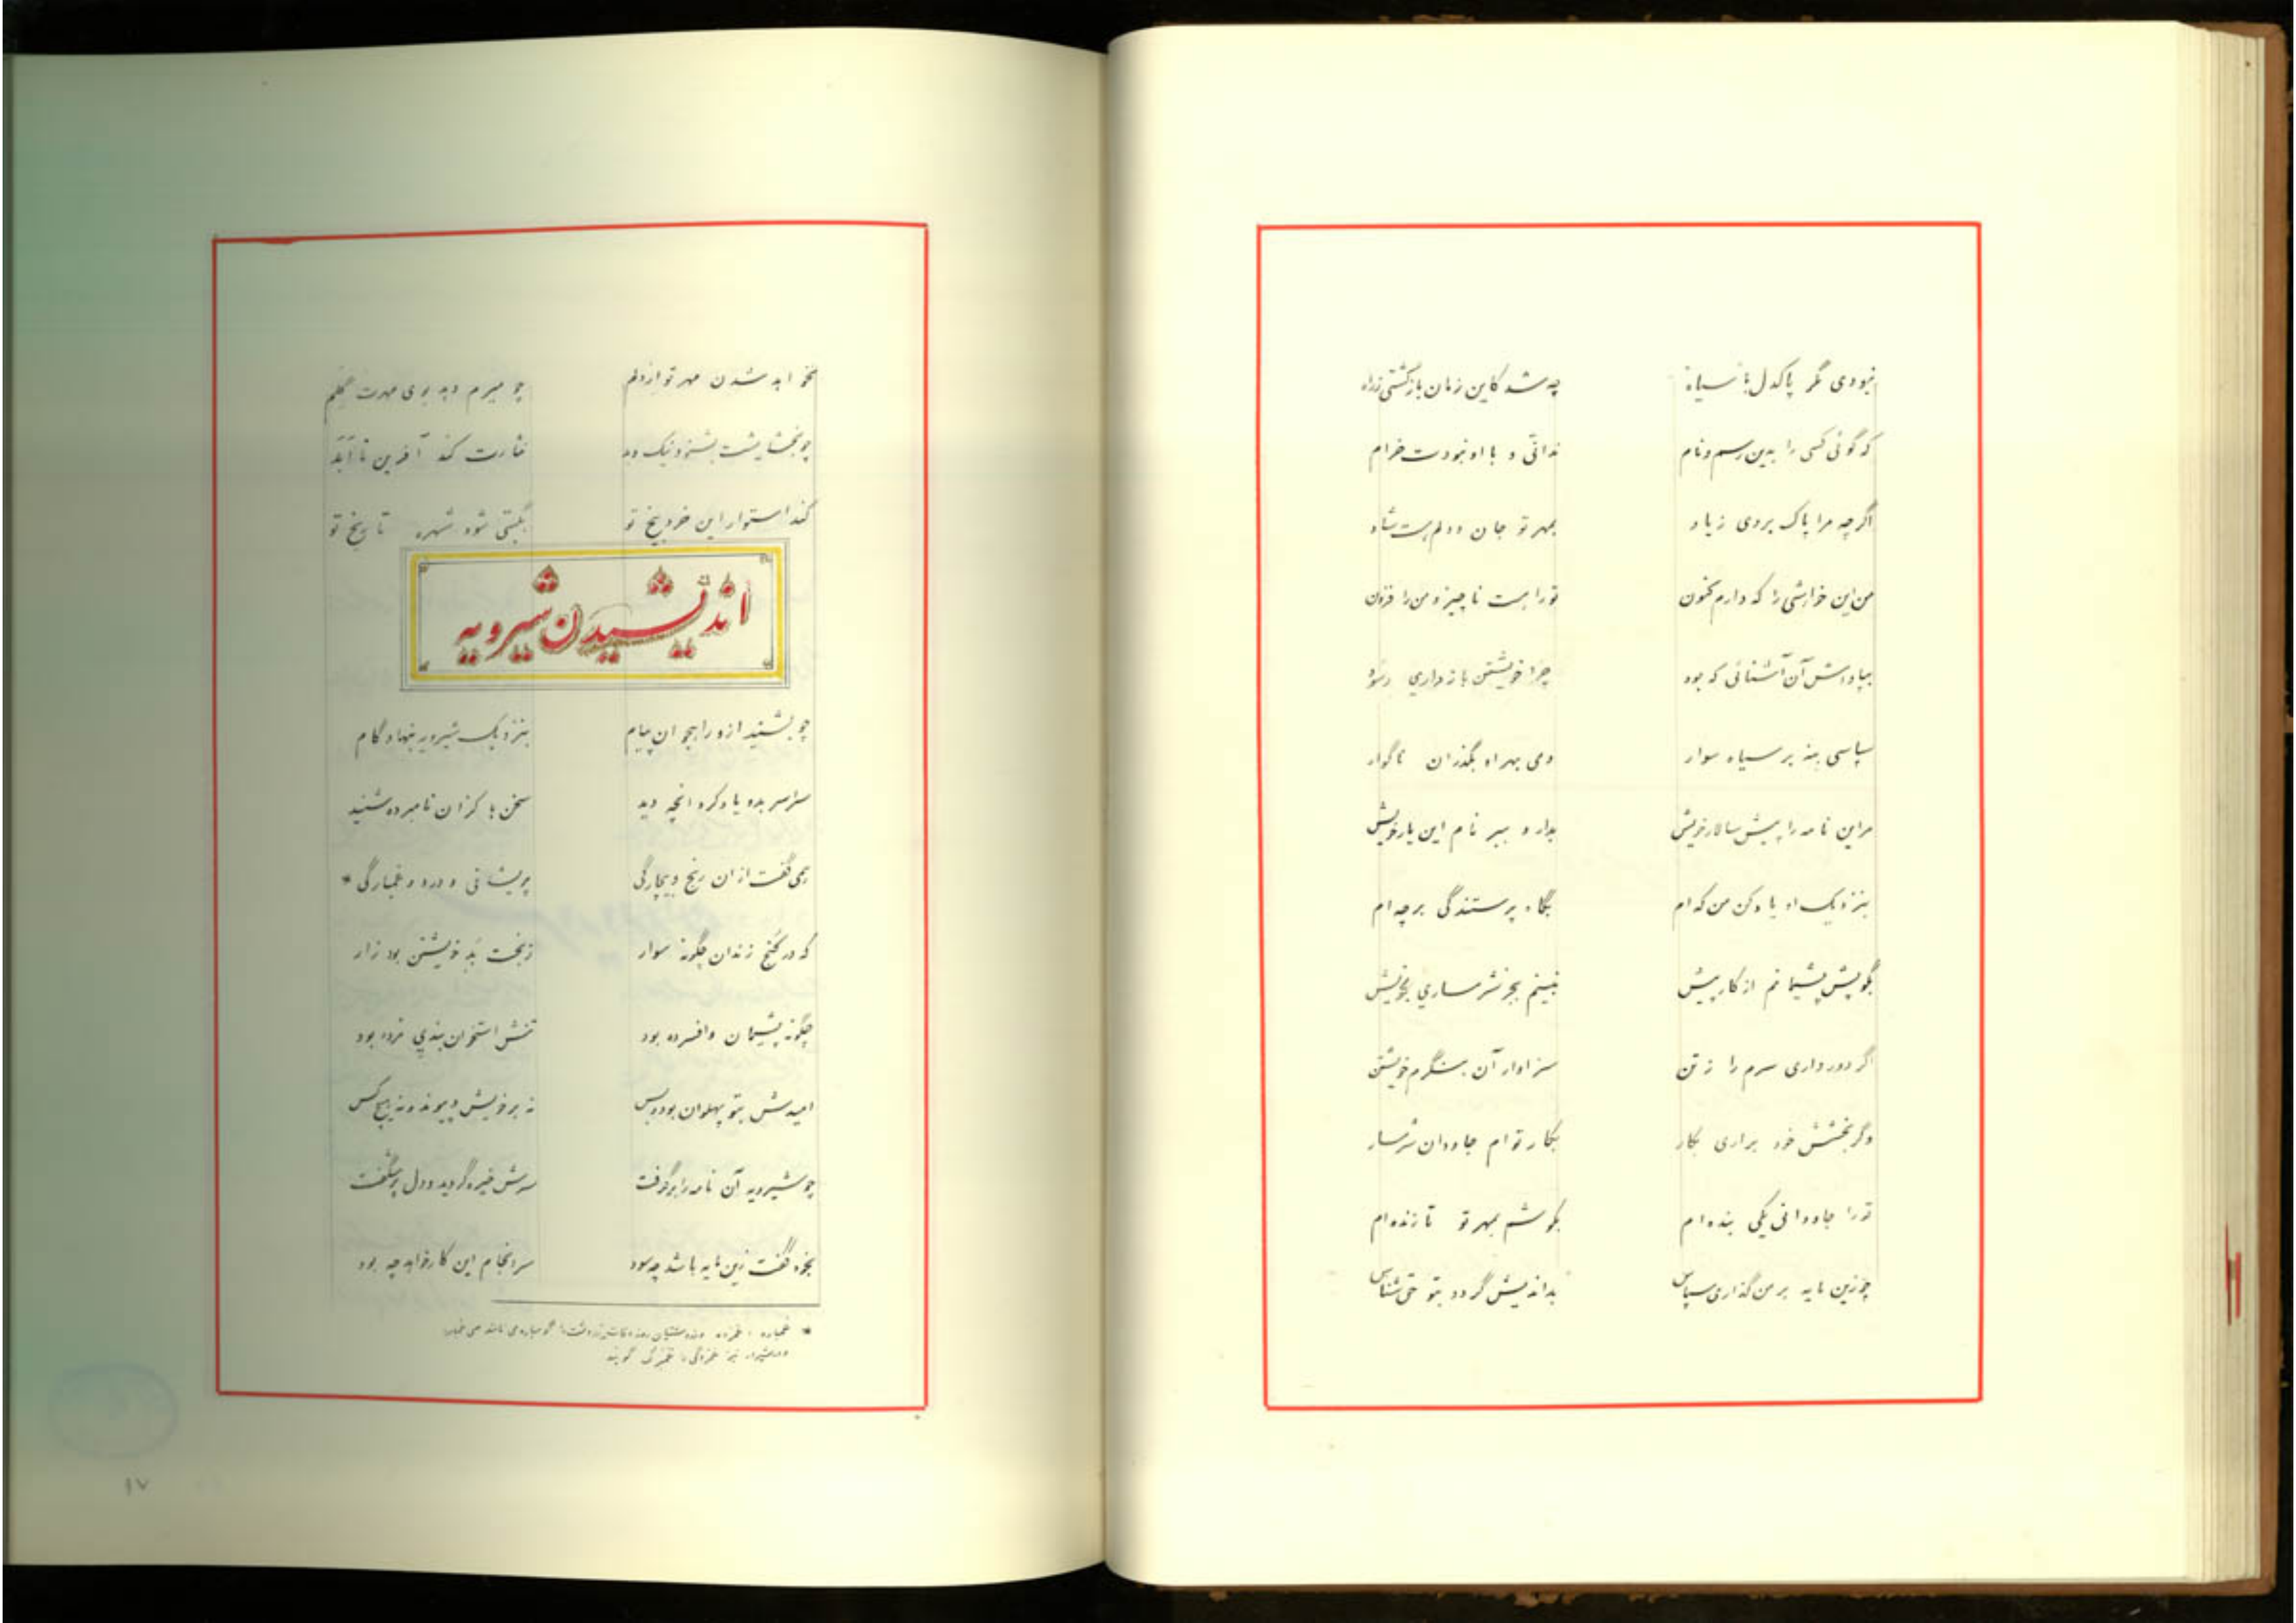 نبودی مگر پاکدل با سیاه چه شد کاین زمان بازگشتی ز راه
که گوئی کسی را بدین رسم و نام ندانی و با او نبودت خرام
اگر چه مرا پاک بردی ز یاد بمهر تو جان و دلم هست شاد
من این خواهشی را که دارم کنون تو را هست ناچیز و من را فزون
بپاداش آن آشنائی که بود چرا خویشتن باز داری ز سود
سپاسی بنه بر سیاه سوار دمی بهر او بگذران ناگوار
مر این نامه را پیش سالار خویش بدار و ببر نام این یار خویش
بنزدیک او یاد کن من که ام بگاه پرستندگی بر چه ام
بگویش پشیمانم از کار پیش نبینم بجز شرمساری بخویش
اگر دور داری سرم را ز تن سزاوار آن بنگرم خویشتن
وگر بخشش خود براری بکار بکار توام جاودان شرمسار
تو را جاودانی یکی بنده ام بکوشم بمهر تو تا زنده ام
چو زین مایه بر من گذاری سپاس بداندیش گردد بتو حق شناس
نخواهد شدن مهر تو از دلم چو میرم دهد بوی مهرت گلم
چو بخشایشت بشنود نیک و بد نثارت کند آفرین تا اَبَد
کند استوار این خرد بیخ تو بگیتی شود شهره تاریخ تو
اندیشیدن شیرویه
چو بشنید ازو راهجو آن پیام بنزدیک شیرویه بنهاد گام
سراسر بدو یاد کرد آنچه دید سخن ها کزان نامبرده شنید
همی گفت از آن رنج و بیچارگی پریشانی و درد و غمبارگی *
که در کنج زندان چگونه سوار ز بخت بَدِ خویشتن بود زار
چگونه پشیمان و افسرده بود تنش استخوان بندی مرده بود
امیدش بتو پهلوان بود و بس نه بر خویش و پیوند و نه هیچ کس
چو شیرویه آن نامه را بر گرفت سرش خیره گردید و دل پر شگفت
بخود گفت زین مایه باشد چه سود سرانجام این کار خواهد چه بود
* غمباره ، غمزده
گویند
۱۷